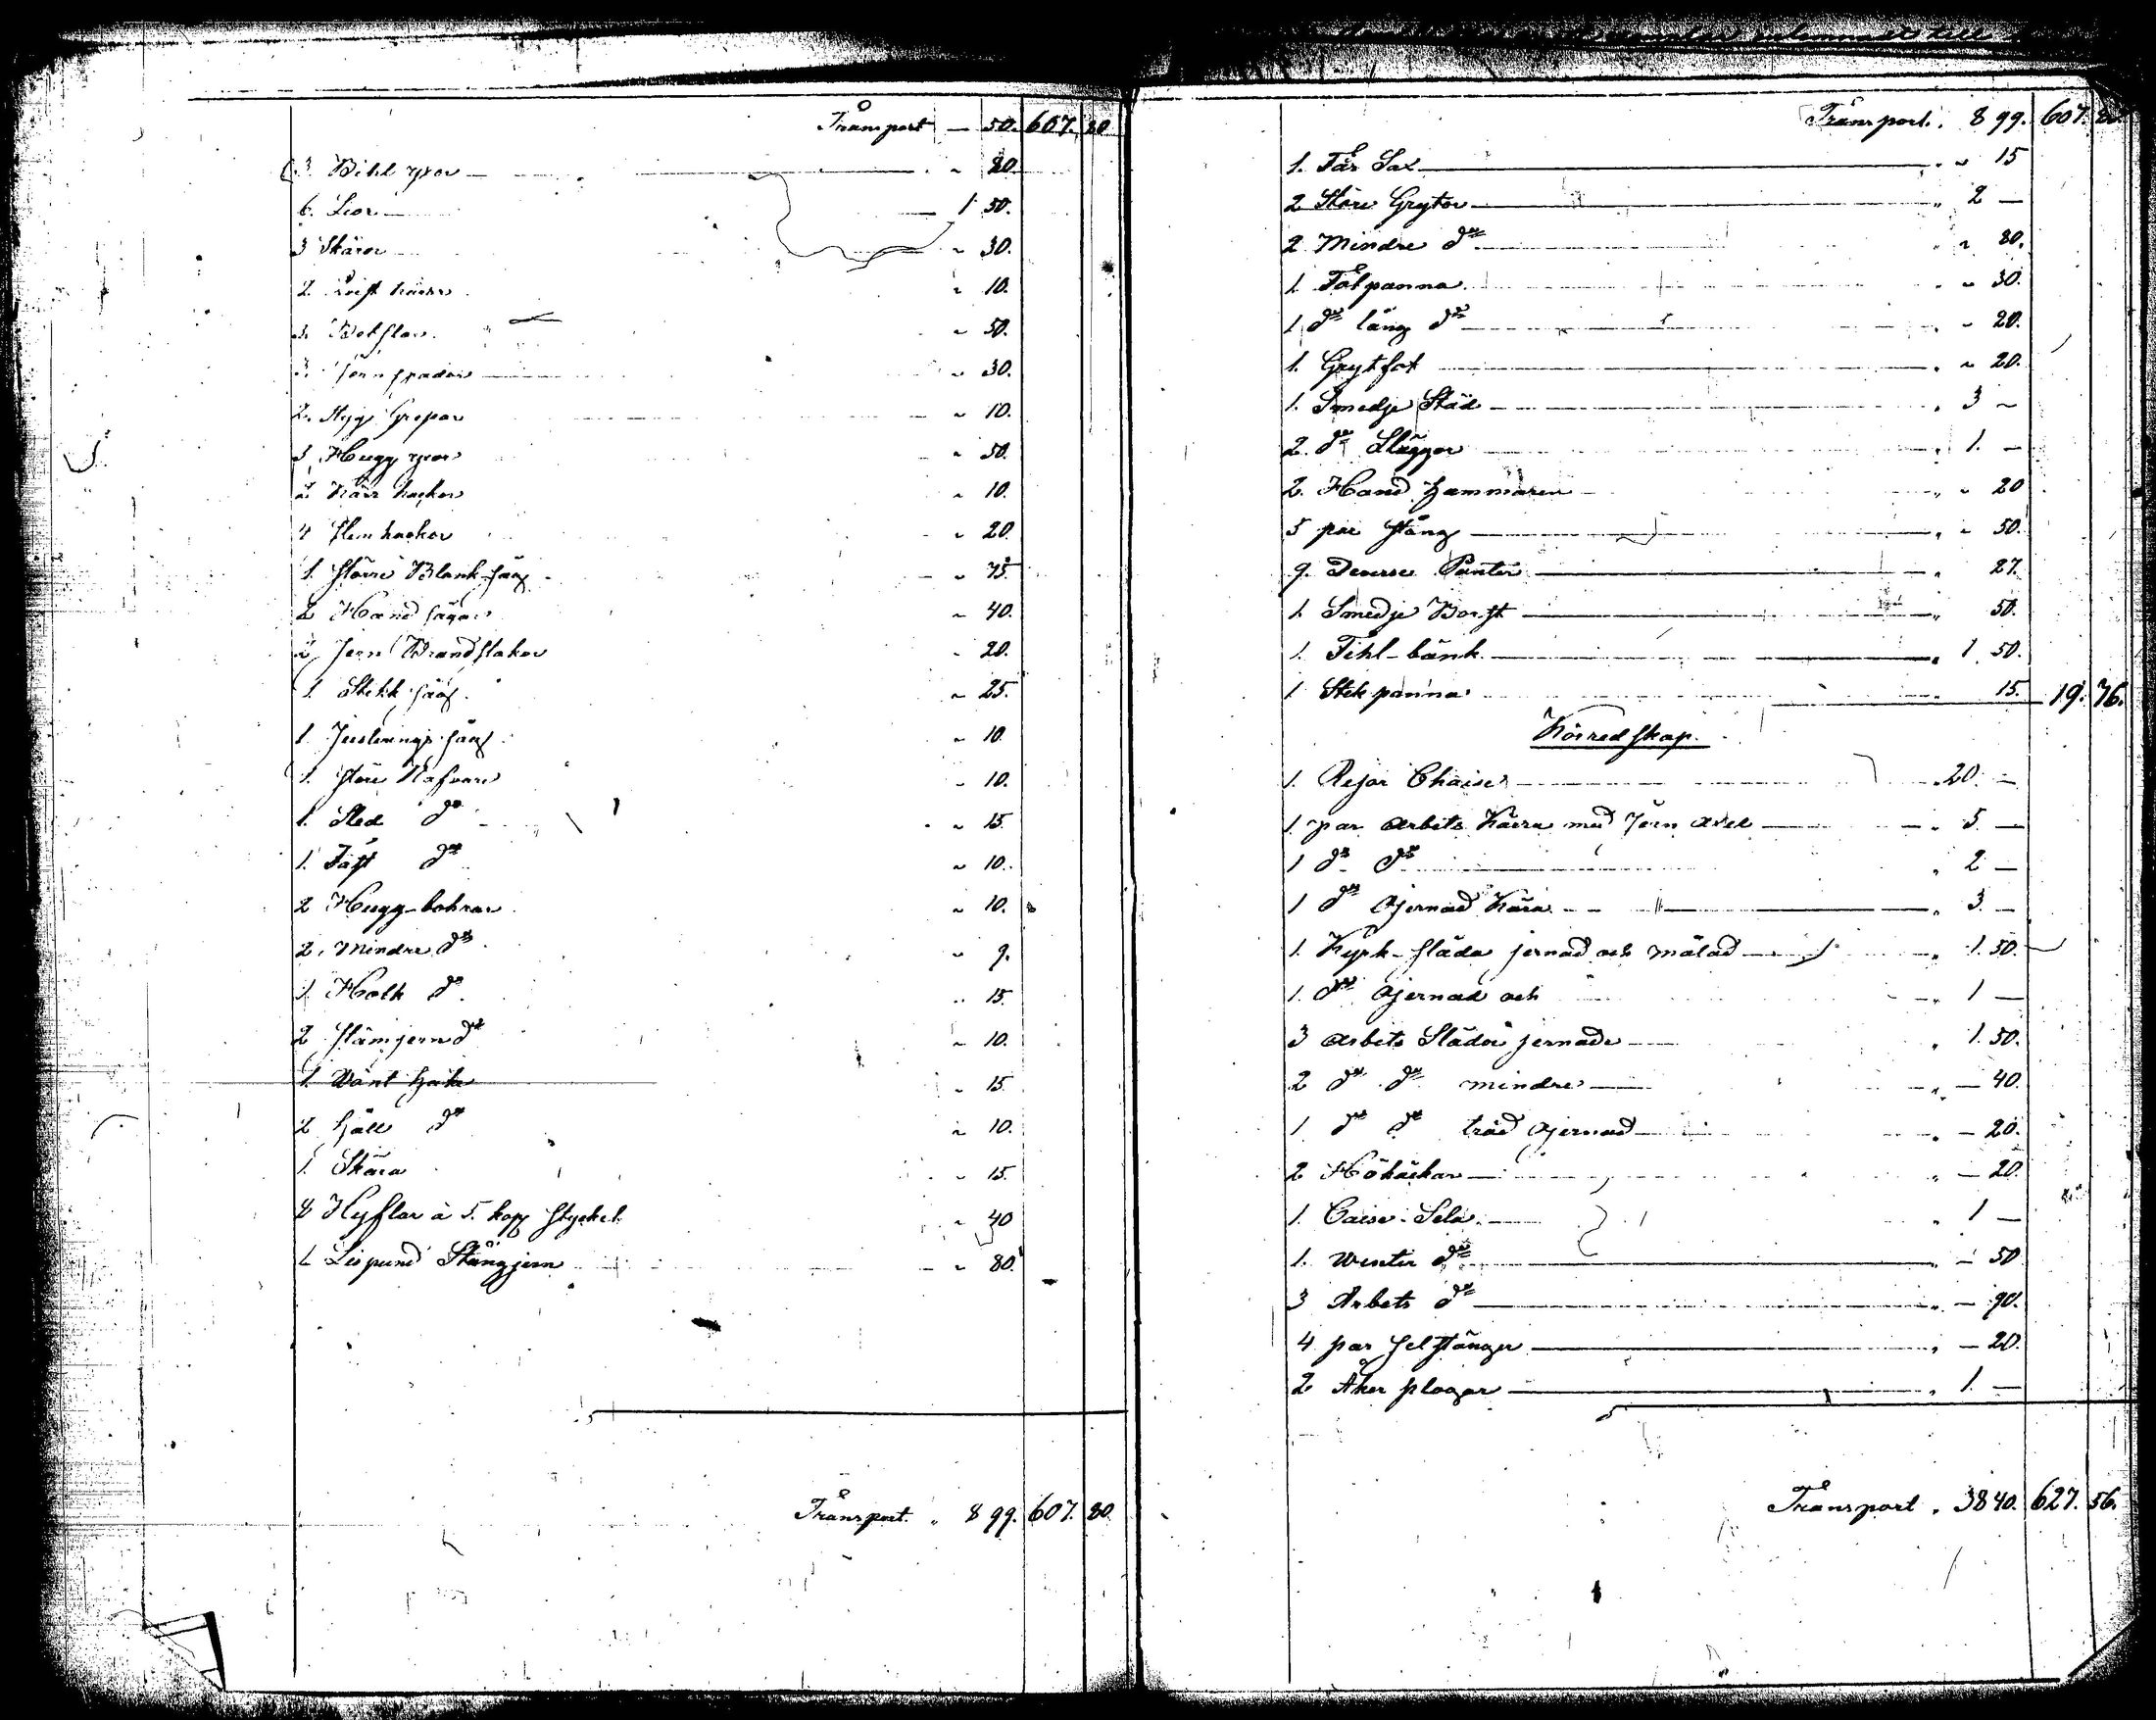 Transport — 50. 607. 80
3 Bihl yxor " 80.
6. Lior 1 50.
3 Skäror " 30.
2. " 10.
3. " 50.
3. Jern spador " 30.
2. Grepar " 10.
3, Hugg yxor " 50.
2 hackor " 10.
4 hackor " 20.
1. Större Blank Såg " 75.
2 Hand sågar " 40.
2 Jern Brandstakar " 20.
1 Stikk såg " 25.
1 Justerings såg " 10.
1. Störe Nafvare " 10.
1. Sled do " 15.
1. Täst do " 10.
2 Hugg-bohrar " 10.
2. Mindre do " 9.
1. Holk do " 15.
2 stämjern do " 10.
1. Wänt haka " 15.
2 Häll do " 10.
1. Skära " 15.
8 Hyflar à 5. kop stycket " 40
2 Lispund Stångjern " 80.
Transport " 8 99. 607. 80
Transport " 8 99. 607. 80
1. Får Sax " " 15
2 Störe Grytor " 2 —
2 Mindre do " " 80.
1. Fotpanna " " 30.
1 do lång do " " 20.
1. Grytfat " " 20.
1. Smedje Städ " 3 —
2. do Släggor " 1. —
2. Hand hammaren " " 20
5 par stång " " 50.
9. Deverse " 27.
1. Smedje Borst " 50.
1. Fihl-bänk " 1. 50.
1 Stek panna " 15. 19. 76.
Körredskap.
1. Resor Chaise " 20. —
1. par Arbets Kärra med Jern axel " 5 —
1 do do " 2 —
1 do Ojernad Kära " 3. —
1. Kyrk-släda jernad och målad " 1. 50.
1. do Ojernad och " 1 —
3 Arbets Slädor jernade " 1. 50.
2 do do mindre " — 40.
1 do do träd Ojernad " — 20.
2 Höhäckar " — 20.
1. Caise-Sela " 1 —
1. Winter do " — 50
3 Arbets do " — 90.
4 par selstänger " — 20.
2 Åker plogar " 1. —
Transport " 38 40. 627. 56.